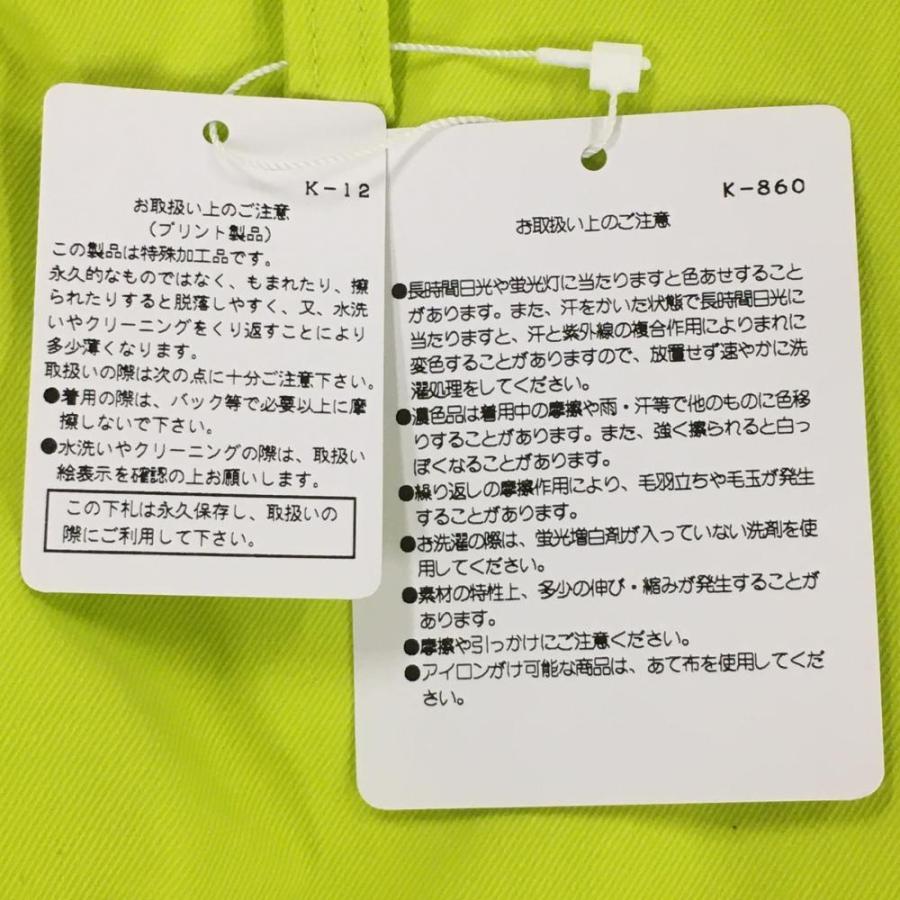 K-12
お取扱い上のご注意
(プリント製品)
この製品は特殊加工品です。
永久的なものではなく、もまれたり、擦
られたりすると脱落しやすく、又、水洗
いやクリーニングをくり返すことにより
多少薄くなります。
取扱いの際は次の点に十分ご注意下さい。
●着用の際は、バック等で必要以上に摩
擦しないで下さい。
●水洗いやクリーニングの際は、取扱い
絵表示を確認の上お願いします。
この下札は永久保存し、取扱いの
際にご利用して下さい。
K-860
お取扱い上のご注意
●長時間日光や蛍光灯に当たりますと色あせすること
があります。また、汗をかいた状態で長時間日光に
当たりますと、汗と紫外線の複合作用によりまれに
変色することがありますので、放置せず速やかに洗
濯処理をしてください。
●濃色品は着用中の摩擦や雨・汗等で他のものに色移
りすることがあります。また、強く擦られると白っ
ぽくなることがあります。
●繰り返しの摩擦作用により、毛羽立ちや毛玉が発生
することがあります。
●お洗濯の際は、蛍光増白剤が入っていない洗剤を使
用してください。
●素材の特性上、多少の伸び・縮みが発生することが
あります。
●摩擦や引っかけにご注意ください。
●アイロンがけ可能な商品は、あて布を使用してくだ
さい。